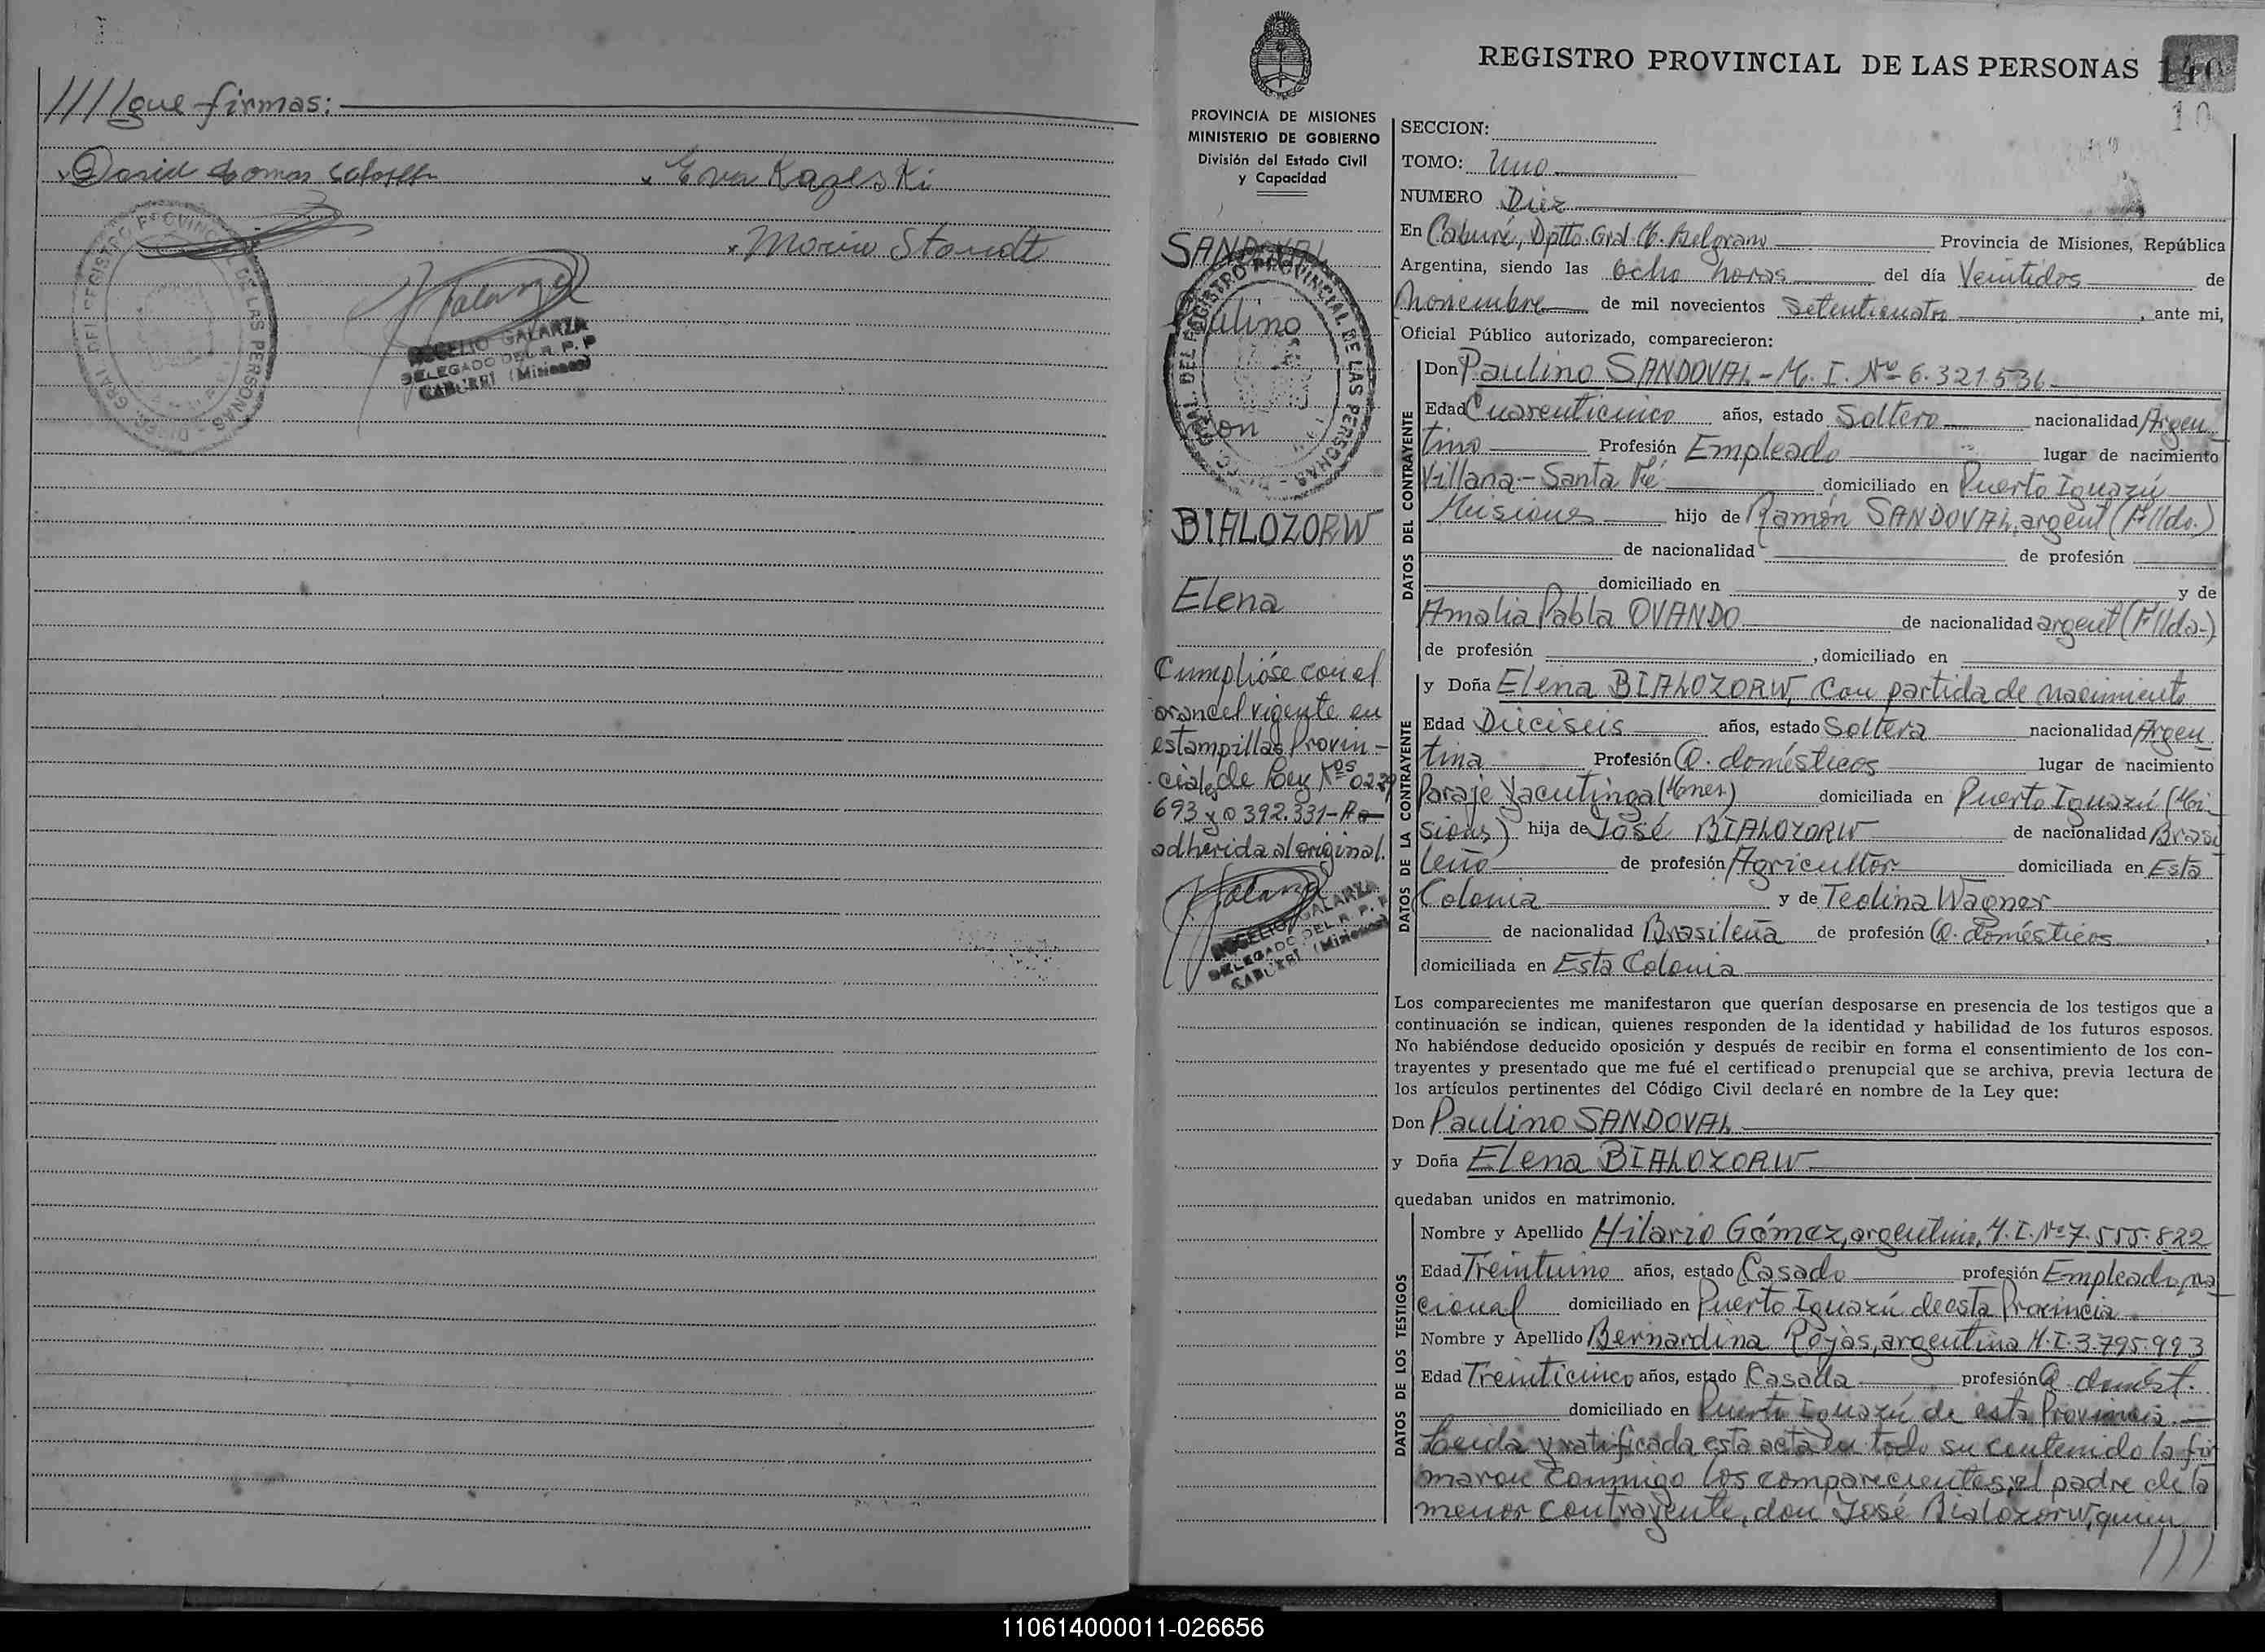 ////que firmas:
Eva Kazeski
ROGELIO GALARZA
DELEGADO DEL R. P. P
CABUREI (Misiones)
PROVINCIA DE MISIONES
MINISTERIO DE GOBIERNO
División del Estado Civil
y Capacidad
SANDOVAL
Paulino
con
BIALOZORW
Elena
Cumplióse con el
arancel vigente en
estampillas Provin-
ciales de Ley Nos 0239
693 y 0392.331-A
adherida al original.
ROGELIO GALARZA
DELEGADO DEL R. P. P
CABUREI (Misiones)
REGISTRO PROVINCIAL DE LAS PERSONAS 140
10
SECCION:
TOMO: Uno
NUMERO Diez
En Caburei, Dptto. Gral. M. Belgrano Provincia de Misiones, República
Argentina, siendo las Ocho horas del día Veintidos de
Noviembre de mil novecientos Setenticuatro, ante mi,
Oficial Público autorizado, comparecieron:
DATOS DEL CONTRAYENTE
Don Paulino SANDOVAL - M. I. Nº 6.321.536
Edad Cuarenticinco años, estado Soltero nacionalidad Argen
tino Profesión Empleado lugar de nacimiento
Villana - Santa Fé domiciliado en Puerto Iguazú
Misiones hijo de Ramón SANDOVAL, argent (Flldo.)
de nacionalidad de profesión
domiciliado en y de
Amalia Pabla OVANDO de nacionalidad argent (Fllda.)
de profesión , domiciliado en
DATOS DE LA CONTRAYENTE
y Doña Elena BIALOZORW, con partida de nacimiento
Edad Dieciseis años, estado Soltera nacionalidad Argen
tina Profesión Q. domésticos lugar de nacimiento
Paraje Yacutinga (Mnes) domiciliada en Puerto Iguazú (Mi
siones) hija de José BIALOZORW de nacionalidad Brasi
leño de profesión Agricultor domiciliada en Esta
Colonia y de Teolina Wagner
de nacionalidad Brasileña de profesión Q. domésticos ,
domiciliada en Esta Colonia
Los comparecientes me manifestaron que querían desposarse en presencia de los testigos que a
continuación se indican, quienes responden de la identidad y habilidad de los futuros esposos.
No habiéndose deducido oposición y después de recibir en forma el consentimiento de los con-
trayentes y presentado que me fué el certificado prenupcial que se archiva, previa lectura de
los artículos pertinentes del Código Civil declaré en nombre de la Ley que:
Don Paulino SANDOVAL
y Doña Elena BIALOZORW
quedaban unidos en matrimonio.
DATOS DE LOS TESTIGOS
Nombre y Apellido Hilario Gómez, argentino, M. I. Nº 7.555.822
Edad Treintuino años, estado Casado profesión Empleado na
cional domiciliado en Puerto Iguazú de esta Provincia
Nombre y Apellido Bernardina Rojas, argentina M. I. 3.795.993
Edad Treinticinco años, estado Casada profesión Q. domést.
domiciliado en Puerto Iguazú de esta Provincia.
Leída y ratificada esta acta en todo su contenido la fir
maron conmigo los comparecientes, el padre de la
menor contrayente, don José Bialozorw, quien
///
110614000011-026656